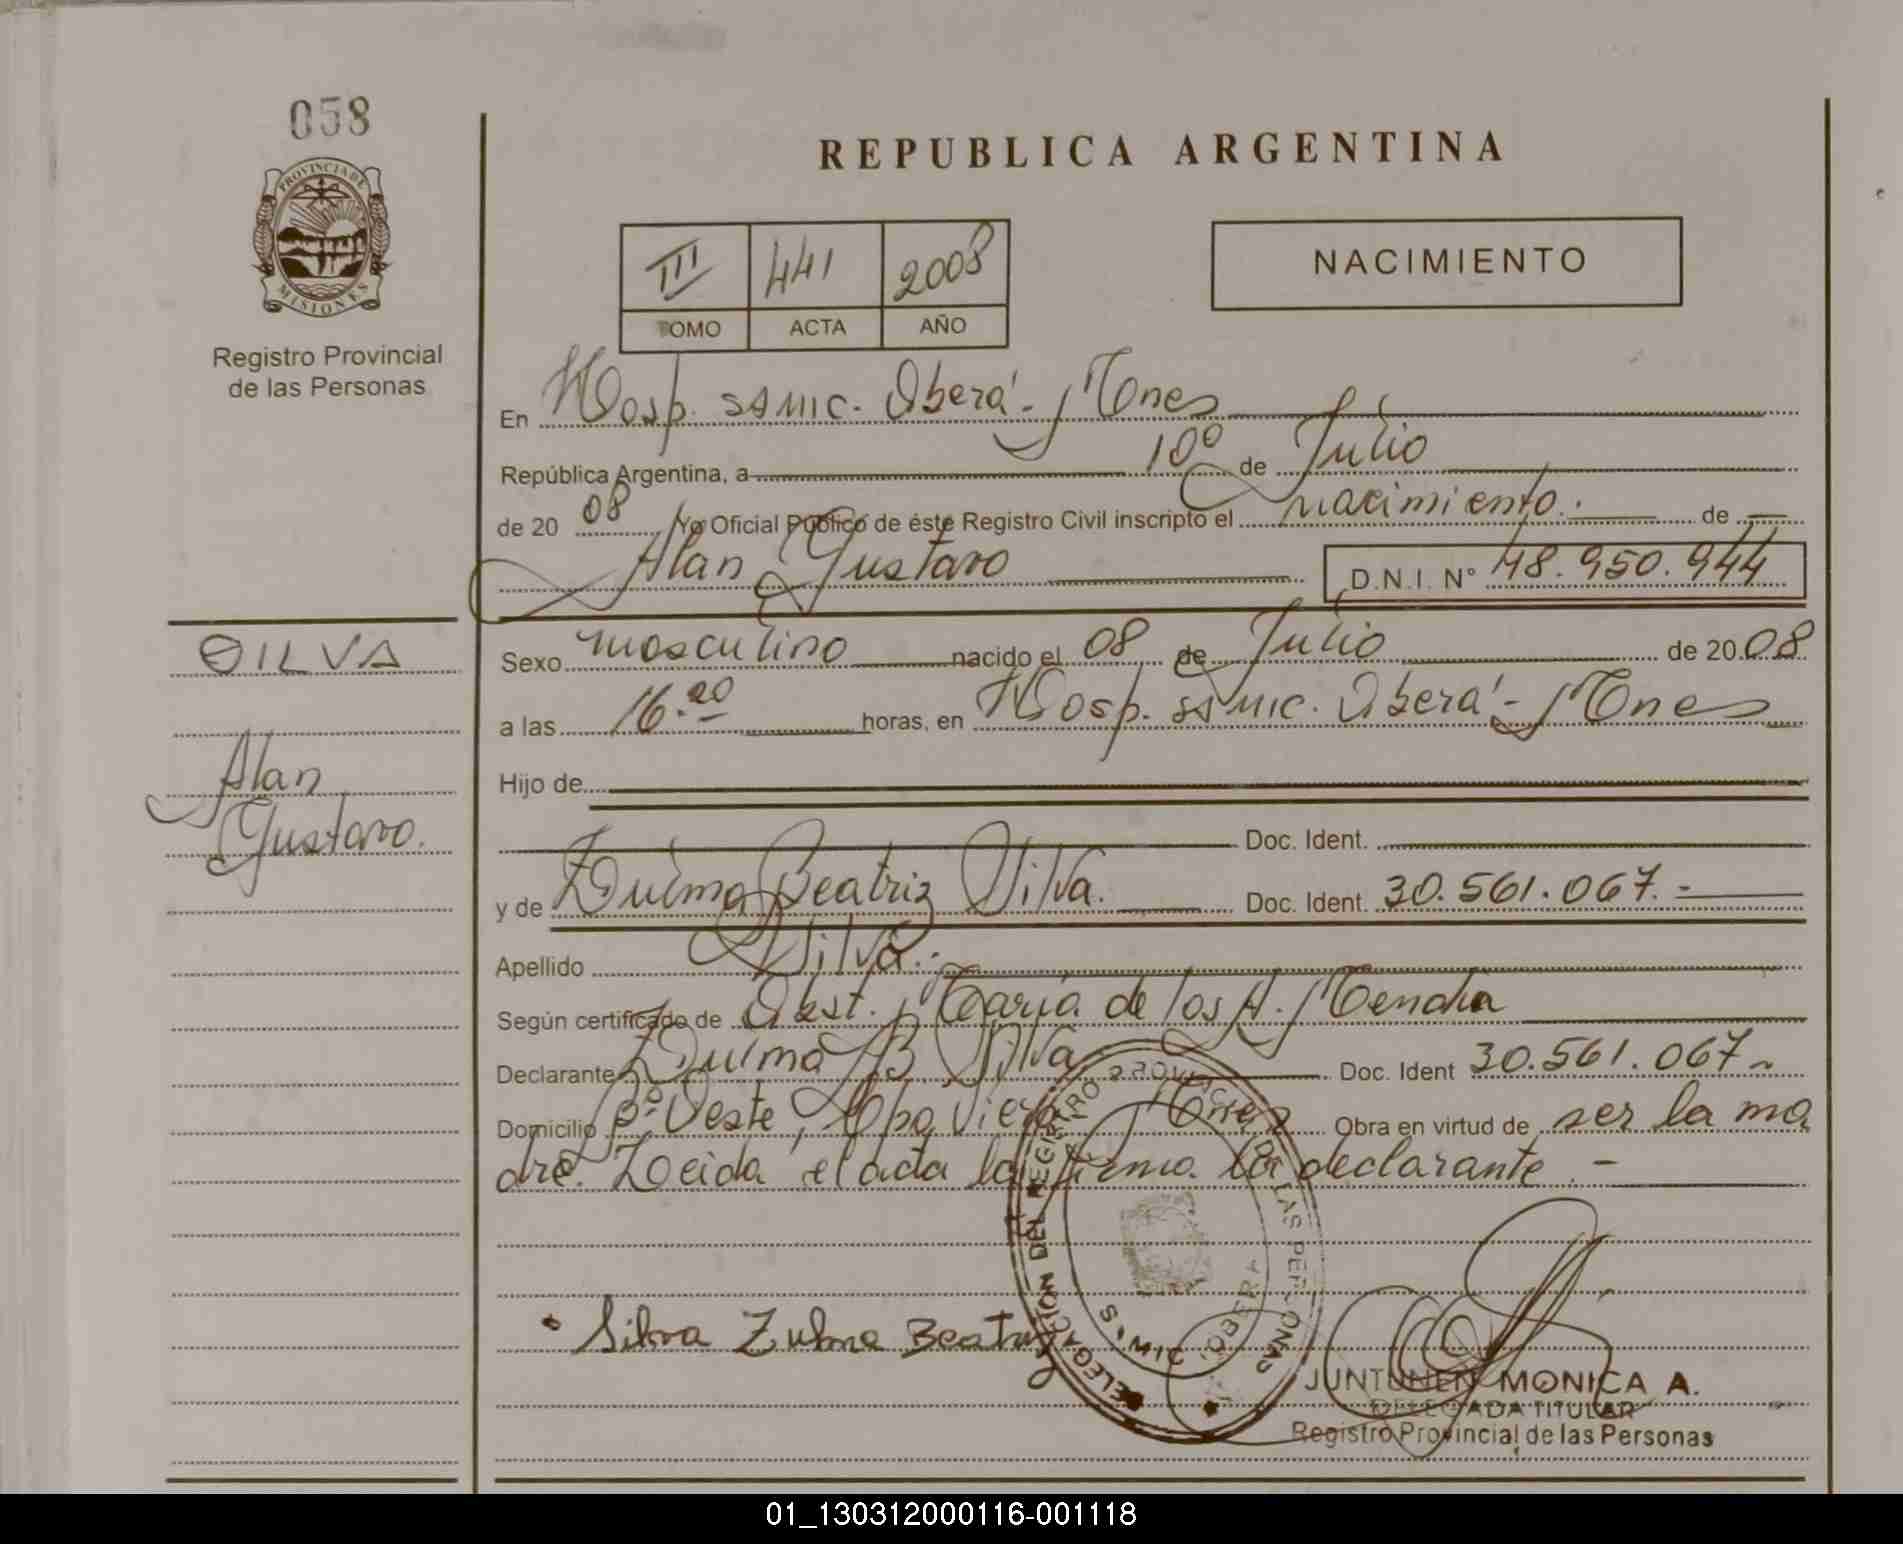 058
PROVINCIA DE
MISIONES
Registro Provincial
de las Personas
REPUBLICA ARGENTINA
III 441 2008
TOMO ACTA AÑO
NACIMIENTO
En Hosp. SAMIC. Oberá - Mnes
República Argentina, a 10º de Julio
de 20 08 Yo Oficial Público de éste Registro Civil inscripto el nacimiento. de
Alan Gustavo D.N.I. Nº 48.950.944
SILVA
Alan
Gustavo.
Sexo masculino nacido el 08 de Julio de 2008
a las 16.20 horas, en Hosp. SAMIC. Oberá - Mnes
Hijo de
Doc. Ident.
y de Zulma Beatriz Silva. Doc. Ident. 30.561.067.-
Apellido Silva.-
Según certificado de Obst. María de los A.
Declarante Zulma B Silva Doc. Ident 30.561.067
Domicilio Oeste, Viera Mnes Obra en virtud de ser la ma
dre. Leida el acta la firma la declarante. -
Silva Zulma Beatriz
DELEGACION DEL REGISTRO PROVINC. DE LAS PERSONAS
OBERA
JUNTUNEN MONICA A.
DELEGADA TITULAR
Registro Provincial de las Personas
01_130312000116-001118